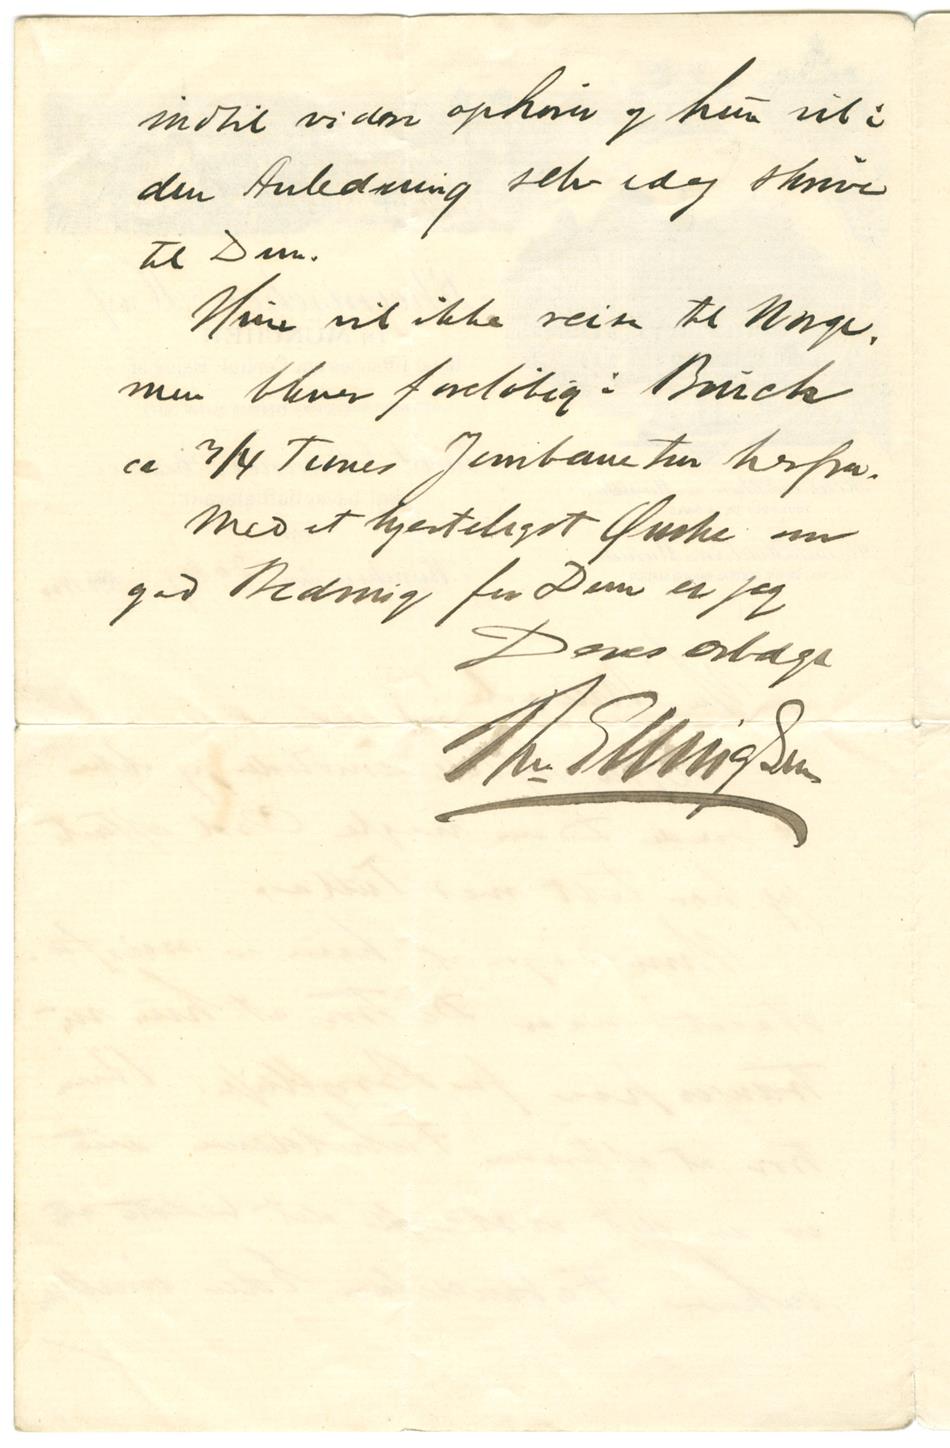 indtil videre ophører og hun vil i
den Anledning selv idag skrive
til Dem.
Hun vil ikke reise til Norge,
men bliver foreløbig i Bruck
ca 3/4 Times Jernbanetur herfra.
Med et hjerteligst Ønske om
god Bedring for Dem er jeg
Deres ærbødige
Ellingsen